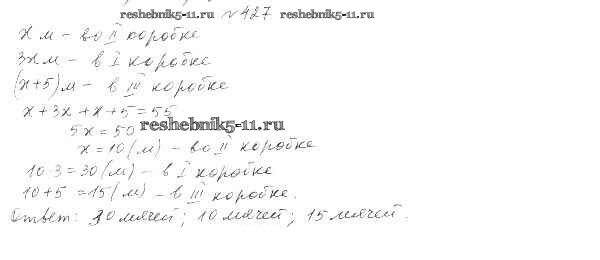 reshebnik5-11.ru №427 reshebnik5-11.ru
x м - во II коробке
3x м - в I коробке
(x+5) м - в III коробке
x + 3x + x + 5 = 55
5x = 50 reshebnik5-11.ru
x = 10 (м) - во II коробке
10·3 = 30 (м) - в I коробке
10 + 5 = 15 (м) - в III коробке.
Ответ: 30 мячей; 10 мячей; 15 мячей.